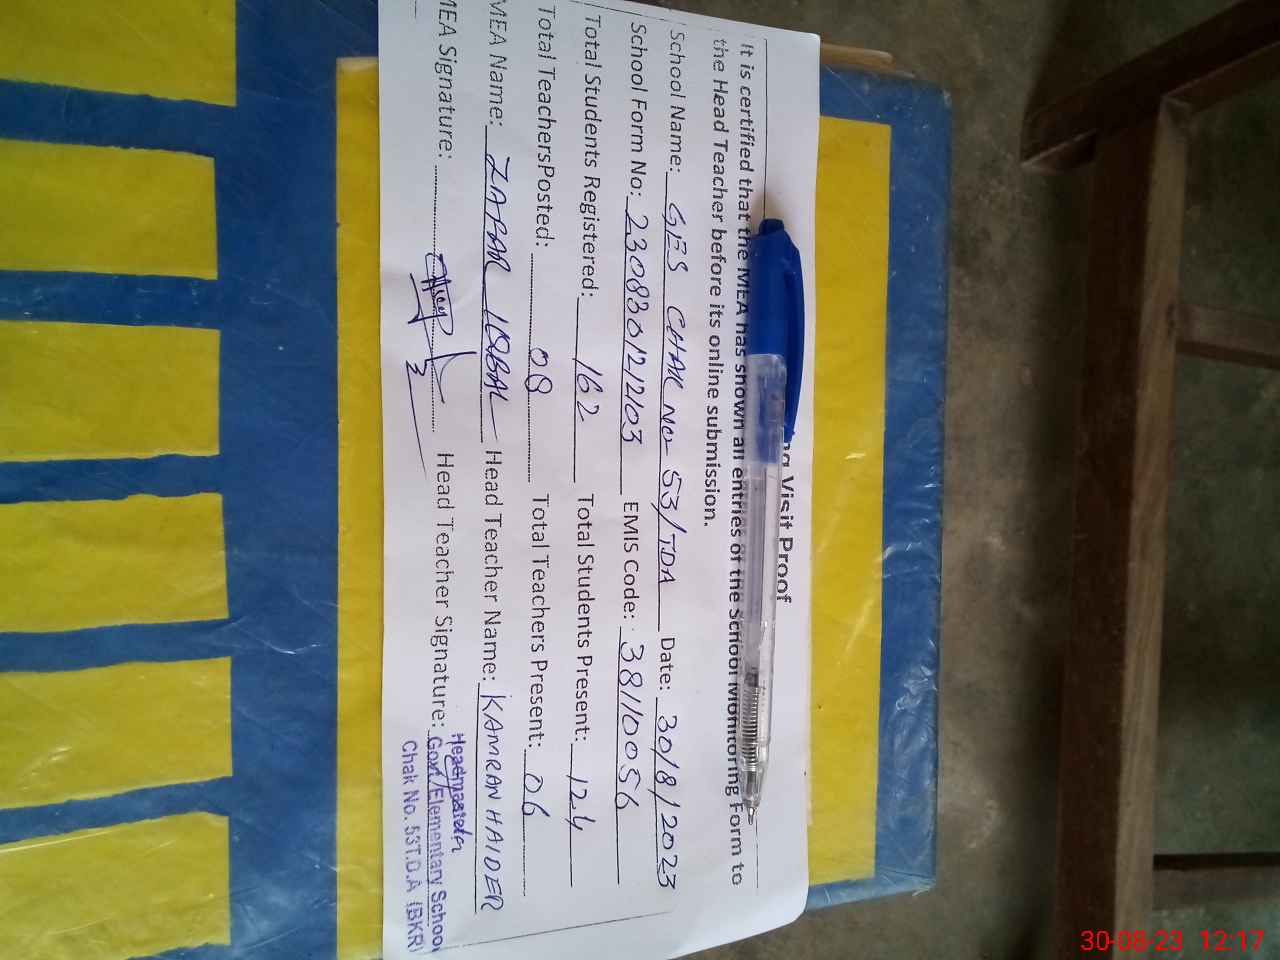 Visit Proof
It is certified that the MEA has shown all entries of the School Monitoring Form to
the Head Teacher before its online submission.
School Name: GES CHAK NO 53/TDA Date: 30/8/2023
School Form No: 2308301212103 EMIS Code: 38110056
Total Students Registered: 162 Total Students Present: 124
Total TeachersPosted: 08 Total Teachers Present: 06
MEA Name: ZAFAR IQBAL Head Teacher Name: KAMRAN HAIDER
MEA Signature: Head Teacher Signature:
Headmaster
Govt Elementary School
Chak No. 53T.D.A (BKR)
30-08-23 12:17